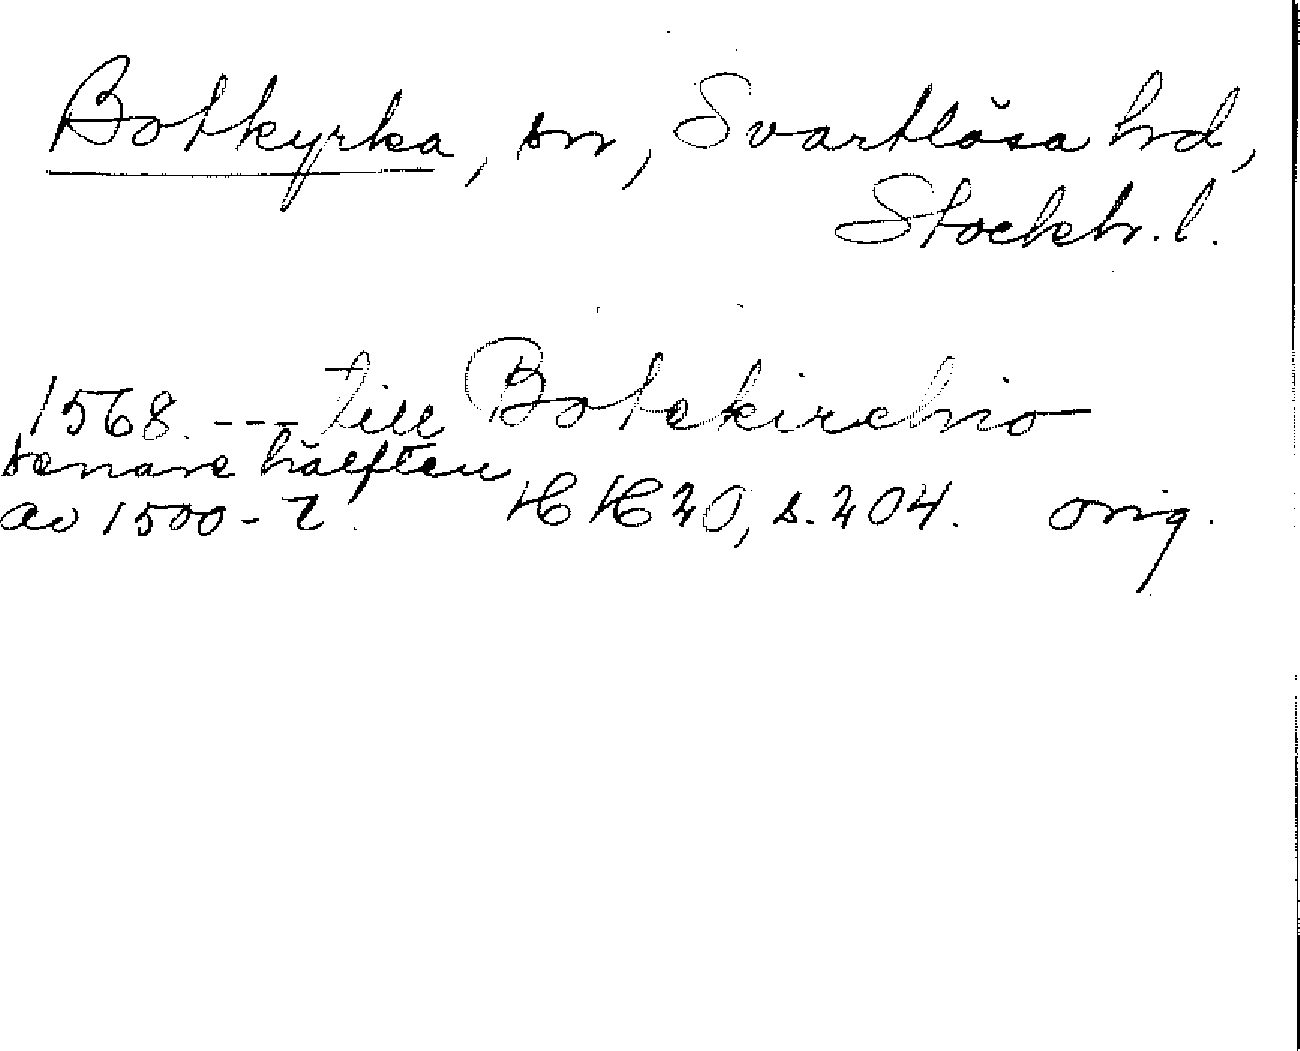 Botkyrka, sn, Svartlösa hrd,
Stockh. l.
1568. --- till Botekirchio
senare hälften
av 1500-t. HH 20, s. 204. orig.